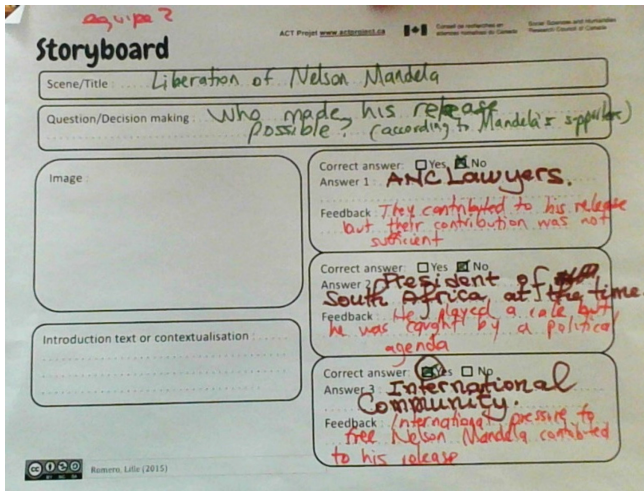 equipe 2
ACT Projet www.actproject.ca
Conseil de recherches en
sciences humaines du Canada
Social Sciences and Humanities
Research Council of Canada
Storyboard
Scene/Title : Liberation of Nelson Mandela
Question/Decision making : Who made his release
possible? (according to Mandela's supporters)
Image :
Introduction text or contextualisation :
Correct answer: Yes No
Answer 1 : ANC Lawyers.
Feedback : They contributed to his release
but their contribution was not
sufficient
Correct answer: Yes No
Answer 2 : President of
South Africa at the time.
Feedback : He played a role but
he was caught by a political
agenda
Correct answer: Yes No
Answer 3 : International
Community.
Feedback : International pressure to
free Nelson Mandela contributed
to his release
CC BY NC SA
Romero, Lille (2015)